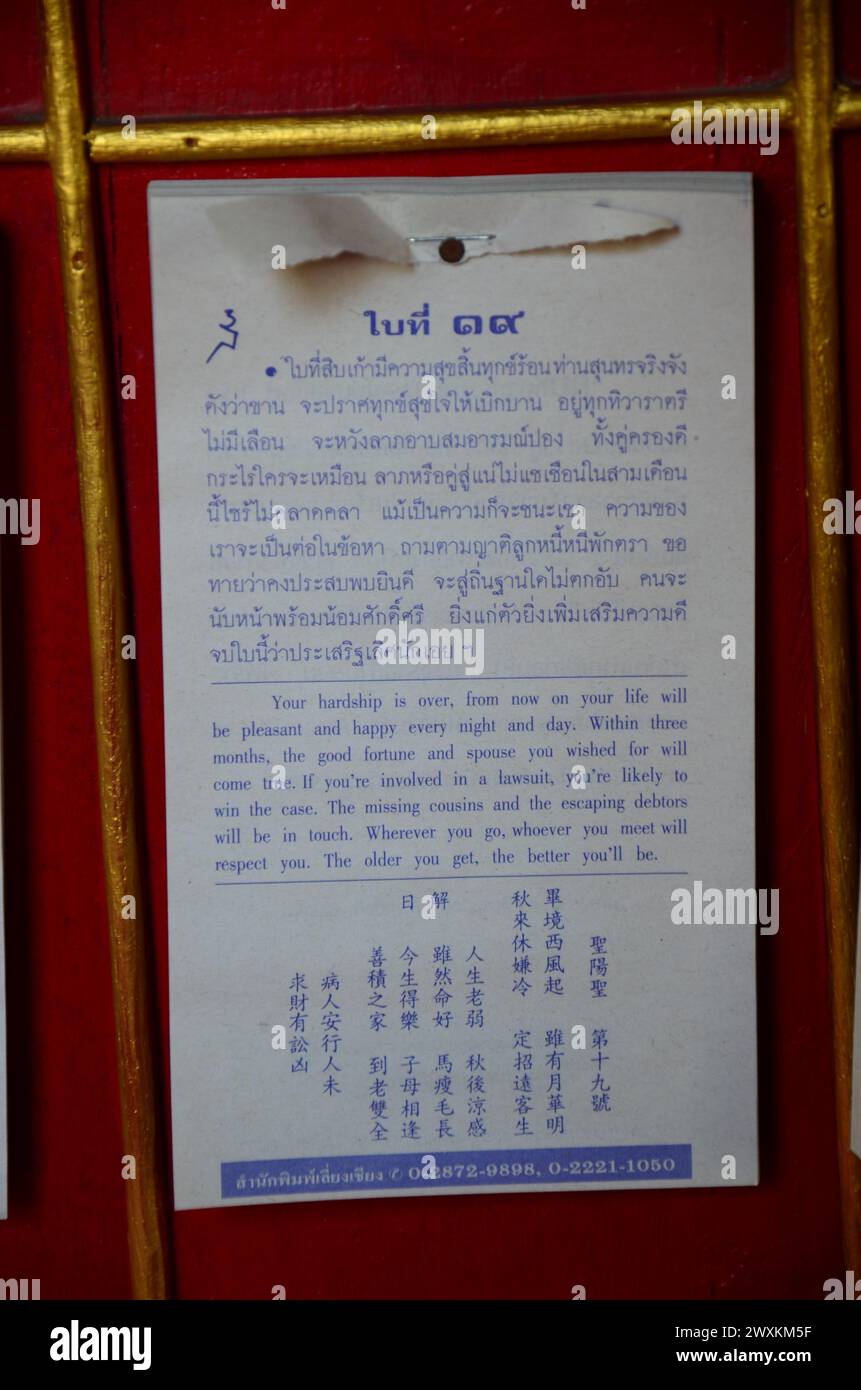 ใบที่ ๑๙
• ใบที่สิบเก้ามีความสุขสิ้นทุกข์ร้อนท่านสุนทรจริงจัง
ดังว่าขาน จะปราศทุกข์สุขใจให้เบิกบาน อยู่ทุกทิวาราตรี
ไม่มีเลือน จะหวังลาภอาบสมอารมณ์ปอง ทั้งคู่ครองดี
กระไรใครจะเหมือน ลาภหรือคู่สู่แน่ไม่แชเชือนในสามเดือน
นี้ไซร้ไม่คลาดคลา แม้เป็นความก็จะชนะเขา ความของ
เราจะเป็นต่อในข้อหา ถามตามญาติลูกหนี้หนีพักตรา ขอ
ทายว่าคงประสบพบยินดี จะสู่ถิ่นฐานใดไม่ตกอับ คนจะ
นับหน้าพร้อมน้อมศักดิ์ศรี ยิ่งแก่ตัวยิ่งเพิ่มเสริมความดี
จบใบนี้ว่าประเสริฐเลิศนักเอย ฯ
Your hardship is over, from now on your life will
be pleasant and happy every night and day. Within three
months, the good fortune and spouse you wished for will
come true. If you're involved in a lawsuit, you're likely to
win the case. The missing cousins and the escaping debtors
will be in touch. Wherever you go, whoever you meet will
respect you. The older you get, the better you'll be.
聖陽聖 第十九號
畢境西風起 雖有月華明
秋來休嫌冷 定招遠客生
解日
人生老弱 秋後涼感
雖然命好 馬瘦毛長
今生得樂 子母相逢
善積之家 到老雙全
病人安行人未
求財有訟凶
สำนักพิมพ์เลี่ยงเชียง ✆ 0-2872-9898, 0-2221-1050
alamy
Image ID: 2WXKM5F
www.alamy.com